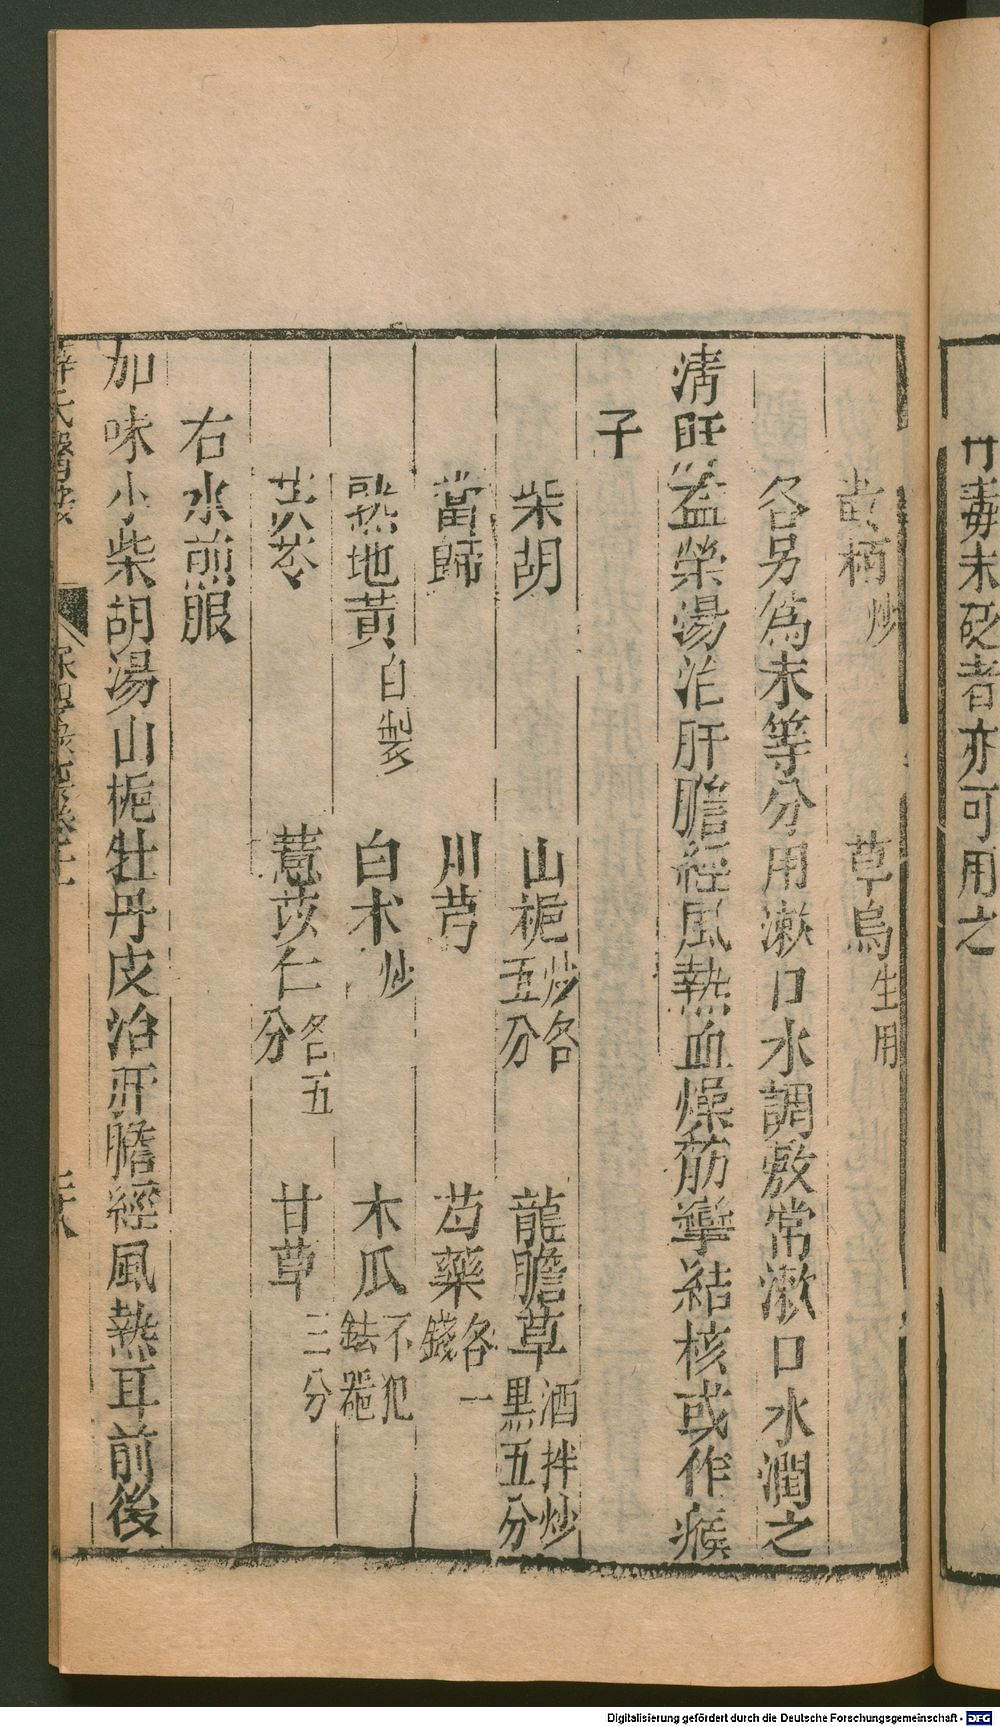 丹毒未砭者亦可用之
黄栢炒　草烏生用
各另為末等分用漱口水調敷常漱口水潤之
清肝益榮湯治肝膽經風熱血燥筋攣結核或作瘊
子
柴胡　山梔炒各五分　龍膽草酒拌炒黒五分
當歸　川芎　芍藥各一錢
熟地黄自製　白朮炒　木瓜不犯鉄器
茯苓　薏苡仁各五分　甘草三分
右水煎服
加味小柴胡湯山梔牡丹皮治肝膽經風熱耳前後
薛氏醫案
Digitalisierung gefördert durch die Deutsche Forschungsgemeinschaft - DFG